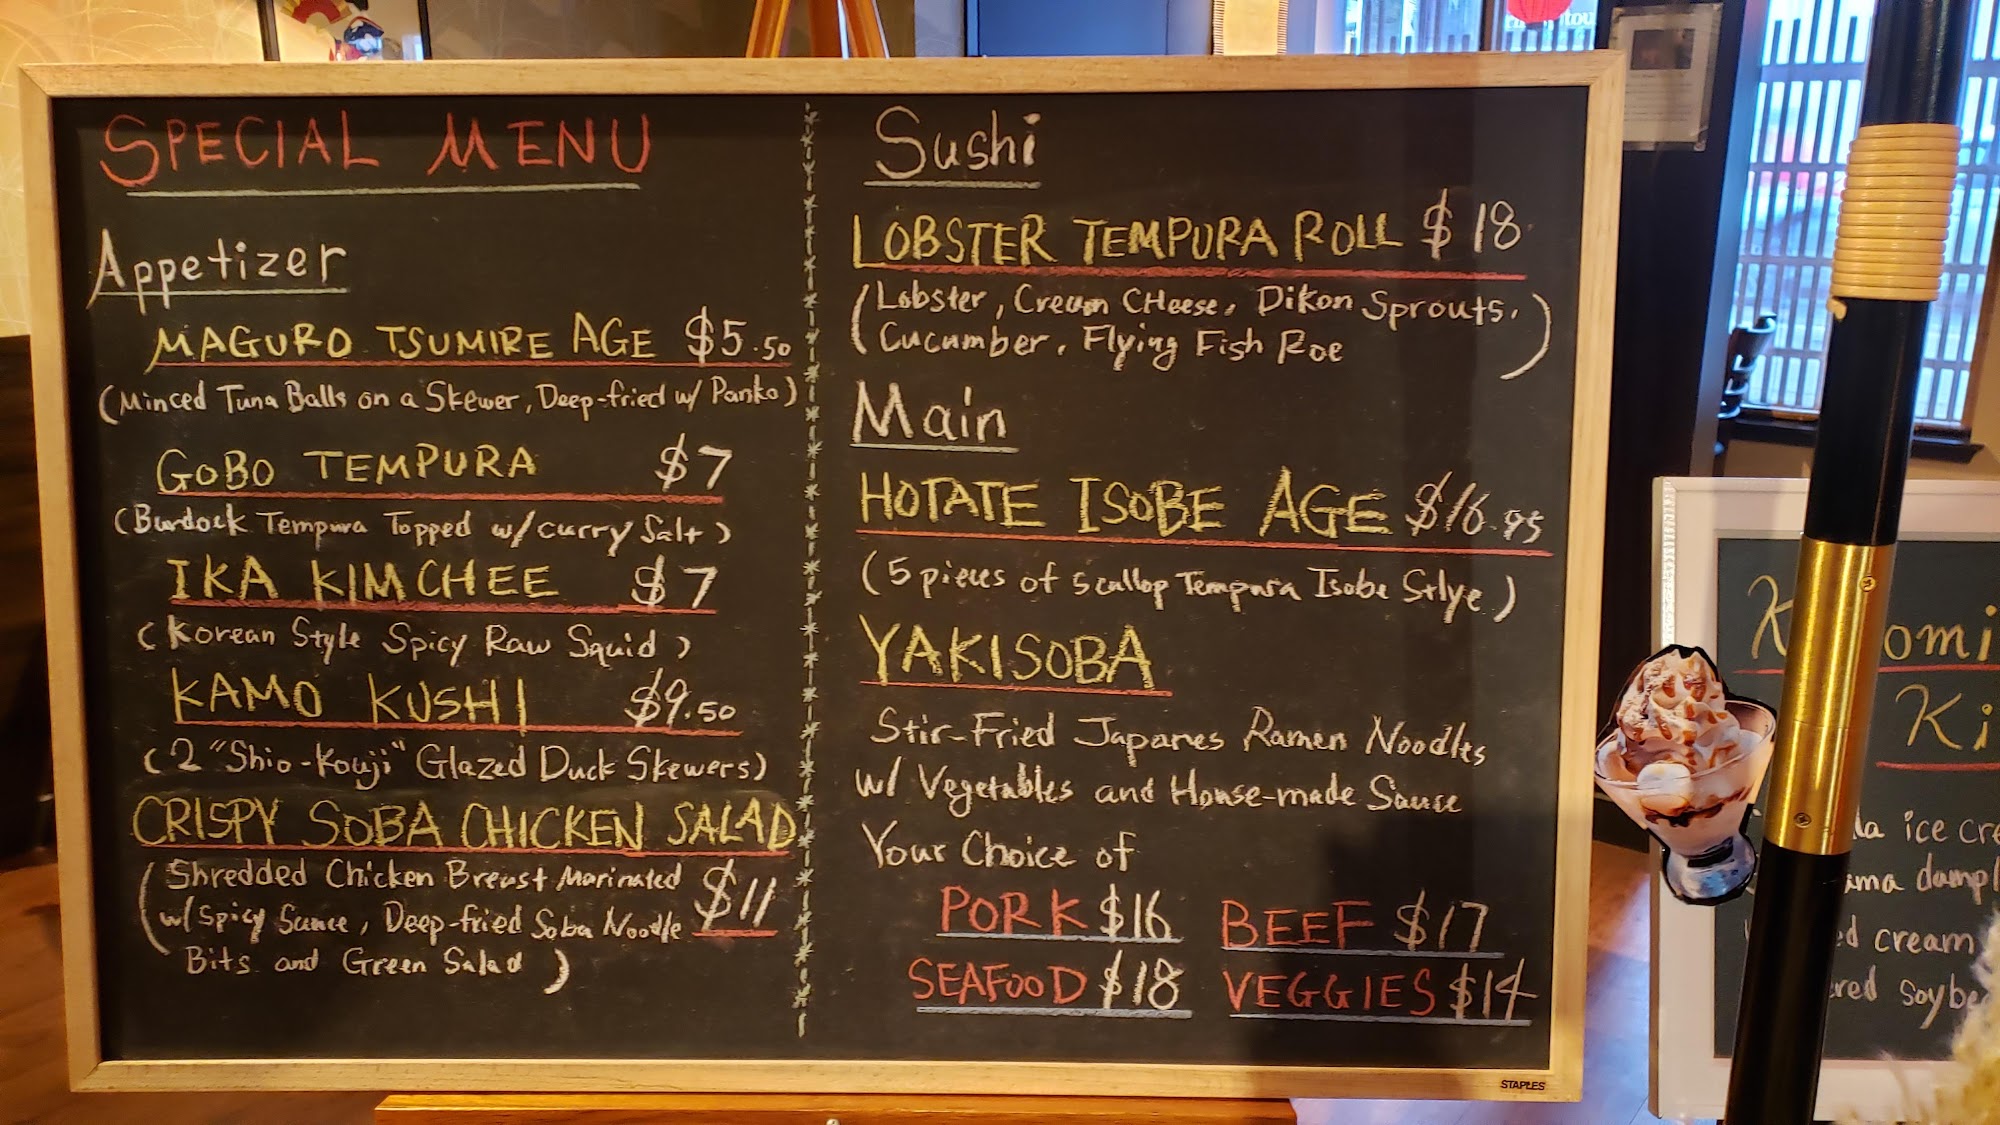 SPECIAL MENU
Appetizer
MAGURO TSUMIRE AGE $5.50
(Minced Tuna Balls on a Skewer, Deep-fried w/ Panko)
GOBO TEMPURA $7
(Burdock Tempura Topped w/ curry Salt)
IKA KIMCHEE $7
(Korean Style Spicy Raw Squid)
KAMO KUSHI $9.50
(2 "Shio-Kouji" Glazed Duck Skewers)
CRISPY SOBA CHICKEN SALAD
(Shredded Chicken Breast Marinated $11
w/ Spicy Sauce, Deep-fried Soba Noodle
Bits and Green Salad)
Sushi
LOBSTER TEMPURA ROLL $18
(Lobster, Cream CHeese, Dikon Sprouts,
Cucumber, Flying Fish Roe)
Main
HOTATE ISOBE AGE $16.95
(5 pieces of scallop Tempura Isobe Stlye)
YAKISOBA
Stir-Fried Japanes Ramen Noodles
w/ Vegetables and House-made Sauce
Your Choice of
PORK $16 BEEF $17
SEAFOOD $18 VEGGIES $14
STAPLES
omi
Ki
ice cre
dumpl
cream
soybe